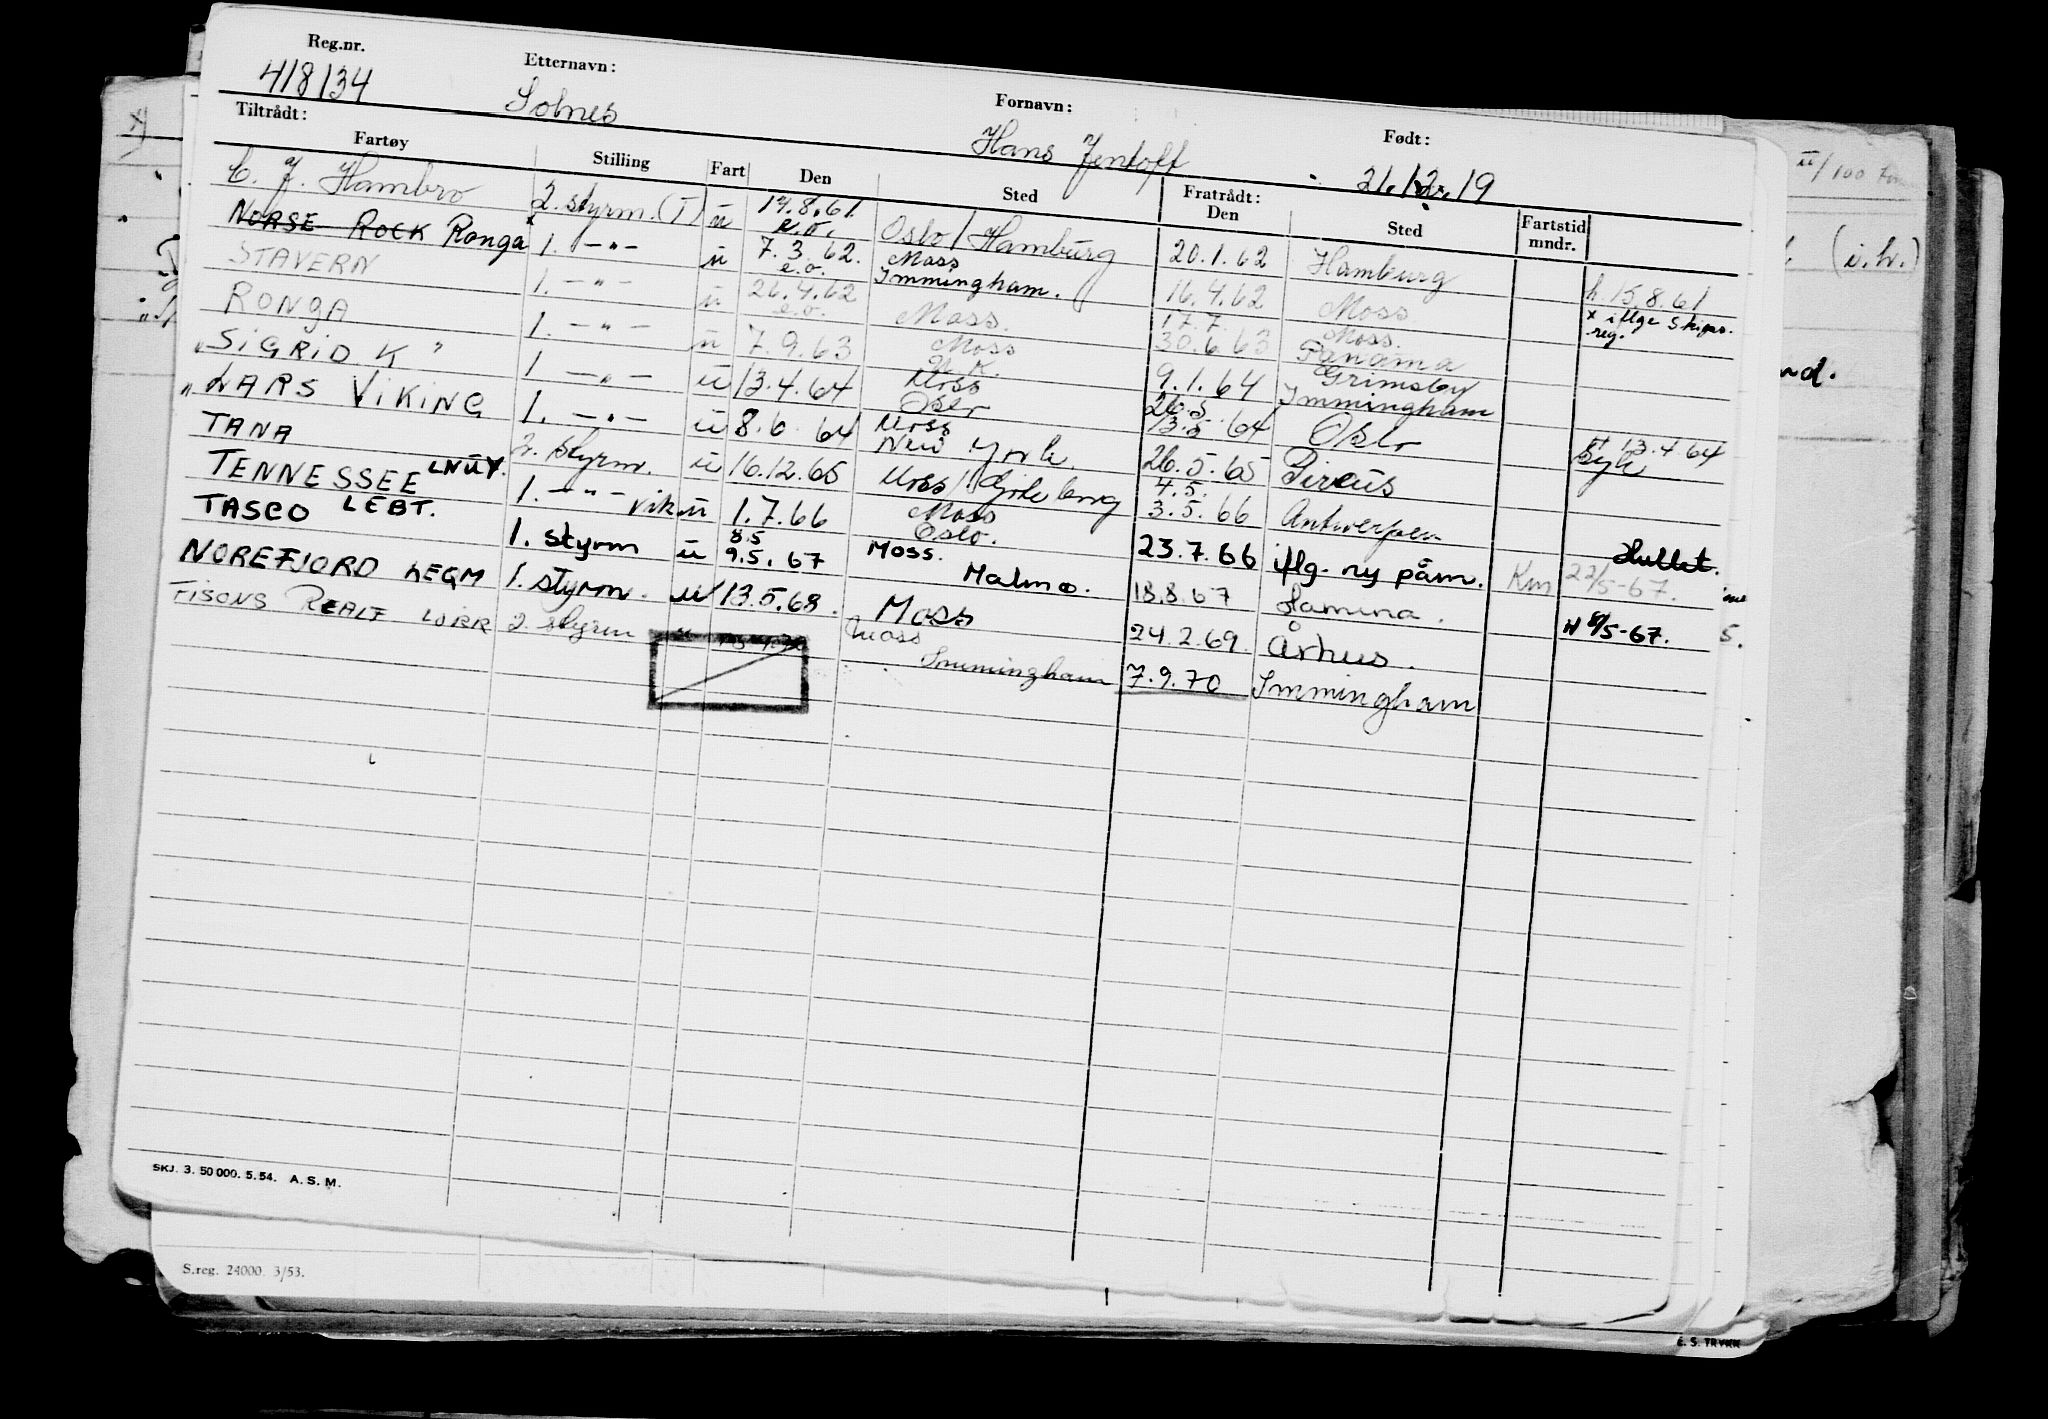 Reg.nr. Etternavn: Fornavn: Født:
418134 Solnes Hans Jentoft 21.12.19
Tiltrådt: Fratrådt:
Fartøy Stilling Fart Den Sted Den Sted Fartstid mndr.
C. J. Hambro 2. styrm. (I) u 14.8.61. Oslo / Hamburg 20.1.62 Hamburg h. 15.8.61
NORSE ROCK Ronga x 1. -"- u e.o. 7.3.62. Moss Immingham. 16.4.62 Moss x iflge Skips. reg.
STAVERN 1. -"- u e.o. 26.4.62 Moss. 17.7. 30.6.63 Moss. Panama
RONGA 1. -"- u e.o. 7.9.63 Moss U.K. 9.1.64 Grimsby Immingham
"SIGRID K" 1 -"- u 13.4.64 Moss Oslo 26.5 13.5.64 Oslo 13.4.64 Syk
"LARS VIKING 1. -"- u 8.6.64 Moss New York. 26.5.65 Pireus
TANA 2. styrm. u 16.12.65 Moss / Göteborg 4.5. 3.5.66 Antwerpen
TENNESSEE LNUY. 1. -"- vik u 1.7.66 Moss Oslo. 23.7.66 iflg. ny påm. Hullet.
TASCO LEBT. 1. styrm u 8.5 9.5.67 Moss. Malmø. 18.8.67 Hamina. Km 22/5-67.
NOREFJORD LEQM 1. styrm. u 13.5.68. Moss 24.2.69. Århus. H 8/5-67.
FISONS REALF LJRR 2. styrm u Moss Immingham 7.9.70 Immingham
SKJ. 3. 50 000. 5. 54. A. S. M.
S.reg. 24000. 3/53.
E. S. TRYKK
II/100
(i.h.)
nd.
5.